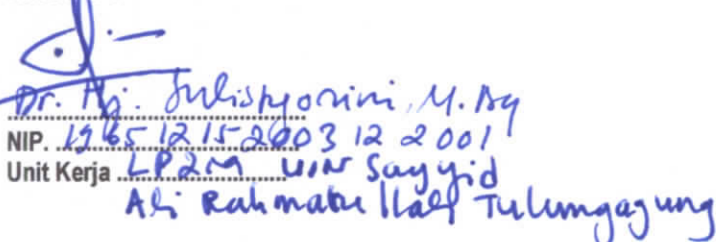 Dr. Hj. Sulistyorini, M.Ag
NIP. 19651215 2003 12 2 001
Unit Kerja LP2M UIN Sayyid
Ali Rahmatullah Tulungagung